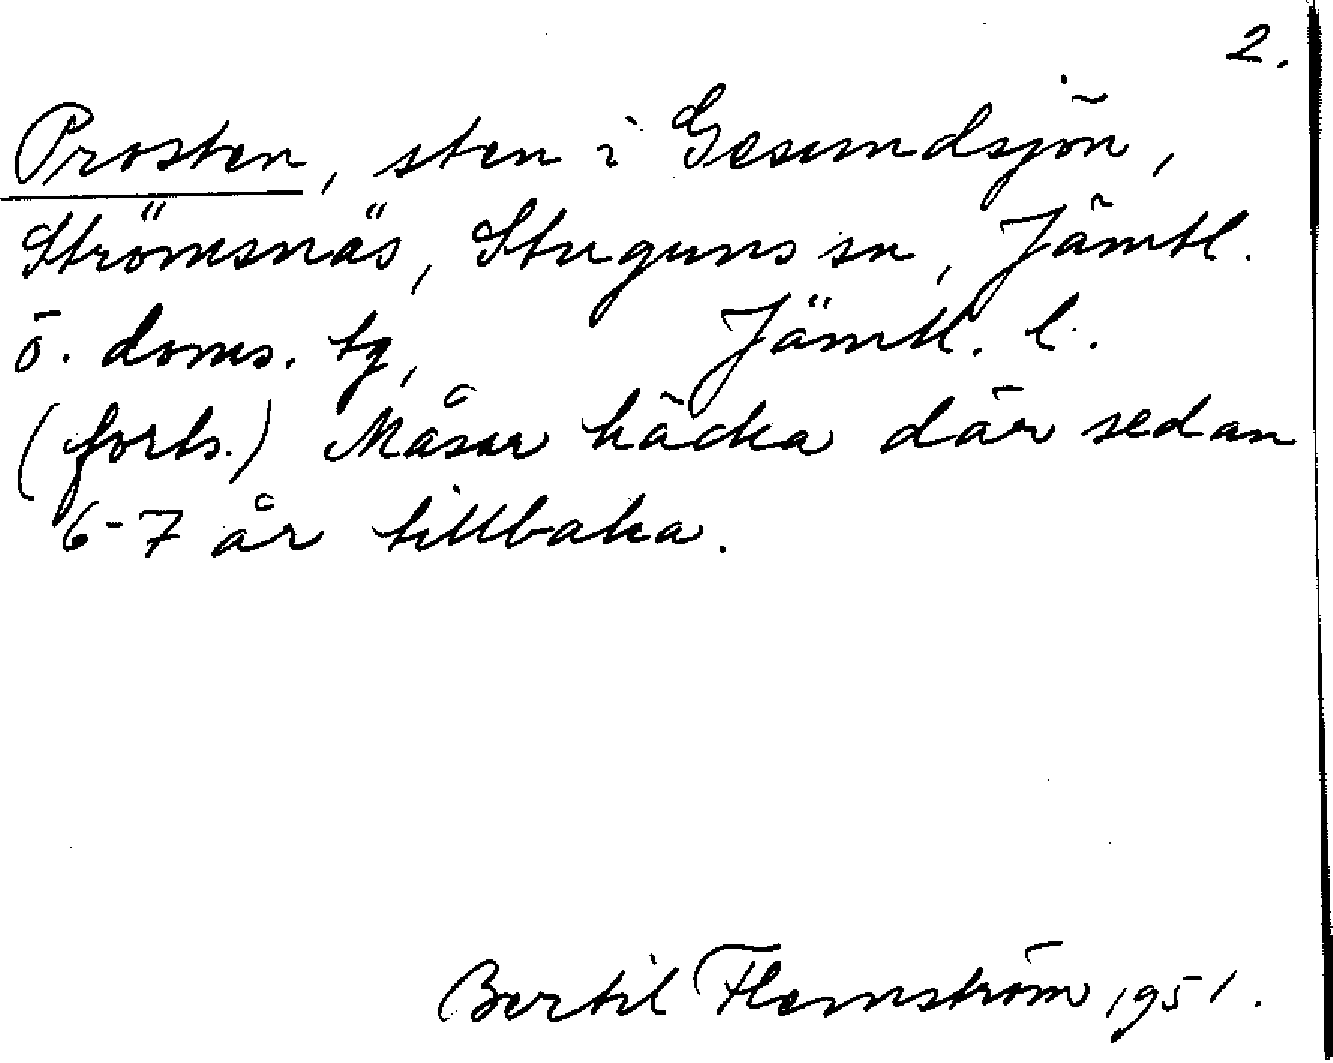 2.
Prosten, sten i Gesundsjön,
Strömsnäs, Stuguns sn, Jämtl.
ö. doms. tg, Jämtl. l.
(forts.) Måsar häcka där sedan
6-7 år tillbaka.
Bertil Flemström, 1951.